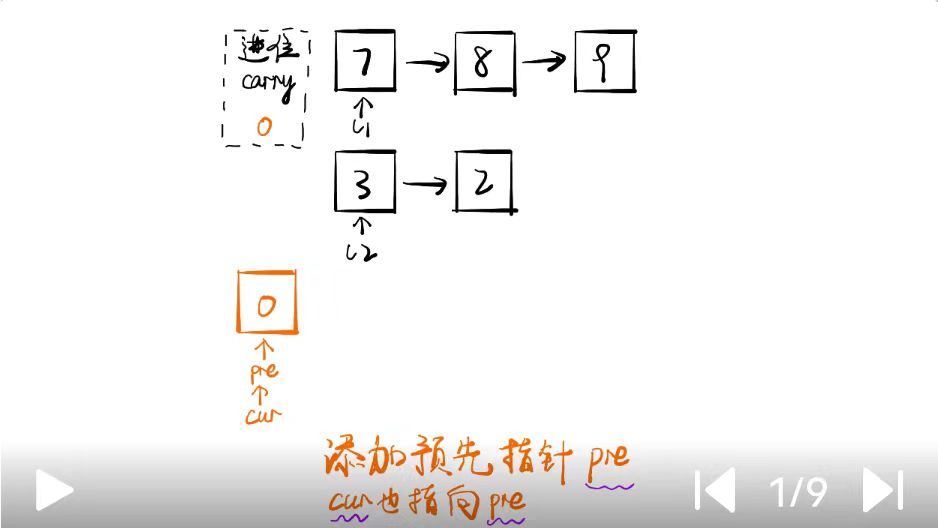 进位
carry
0
7 → 8 → 9
↑
L1
3 → 2
↑
L2
0
↑
pre
↑
cur
添加预先指针 pre
cur也指向pre
1/9